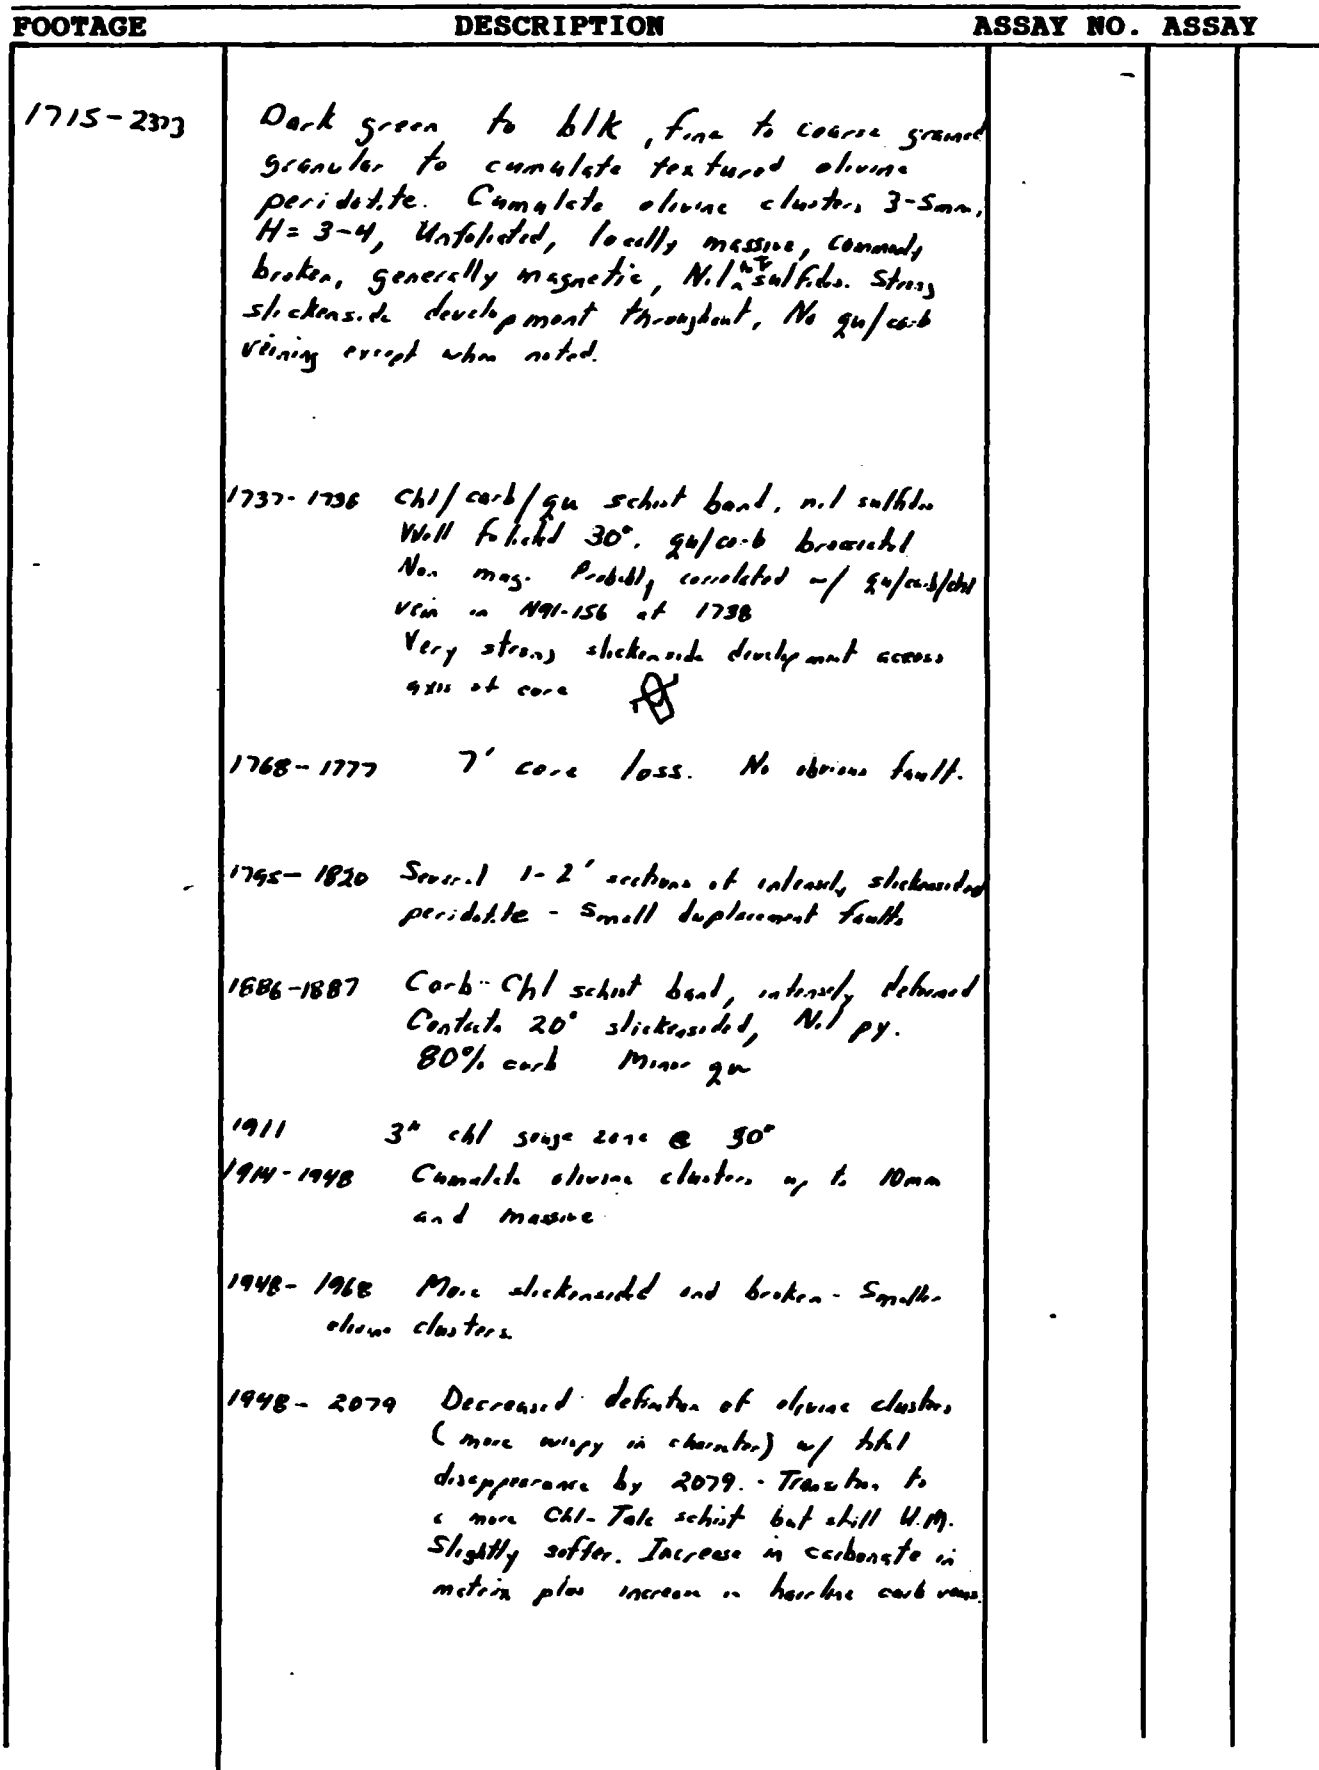 FOOTAGE DESCRIPTION ASSAY NO. ASSAY
1715-2373 Dark green to blk, fine to coarse grained
granular to cumulate textured olivine
peridotite. Cumulate olivine clusters 3-5mm,
H= 3-4, Unfoliated, locally massive, commonly
broken, generally magnetic, Nil to tr sulfides. Strong
slickenside development throughout, No qu/carb
veining except when noted.
1737-1736 Chl/carb/qu schist band, nil sulfides
Well foliated 30°. qu/carb brecciated
Non mag. Probably correlated w/ qu/carb/chl
vein in N91-156 at 1738
Very strong slickenside development across
axis of core
1768-1777 7' core loss. No obvious fault.
1795-1820 Several 1-2' sections of intensely slickensided
peridotite - Small displacement faults
1886-1887 Carb-Chl schist band, intensely deformed
Contacts 20° slickensided, Nil py.
80% carb Minor qu
1911 3" chl gouge zone @ 30°
1914-1948 Cumulate olivine clusters up to 10mm
and massive
1948-1968 More slickensided and broken - Smaller
olivine clusters.
1948-2079 Decreased definition of olivine clusters
(more wispy in character) w/ total
disappearance by 2079. - Transition to
a more Chl-Talc schist but still U.M.
Slightly softer. Increase in carbonate in
matrix plus increase in hairline carb veins.